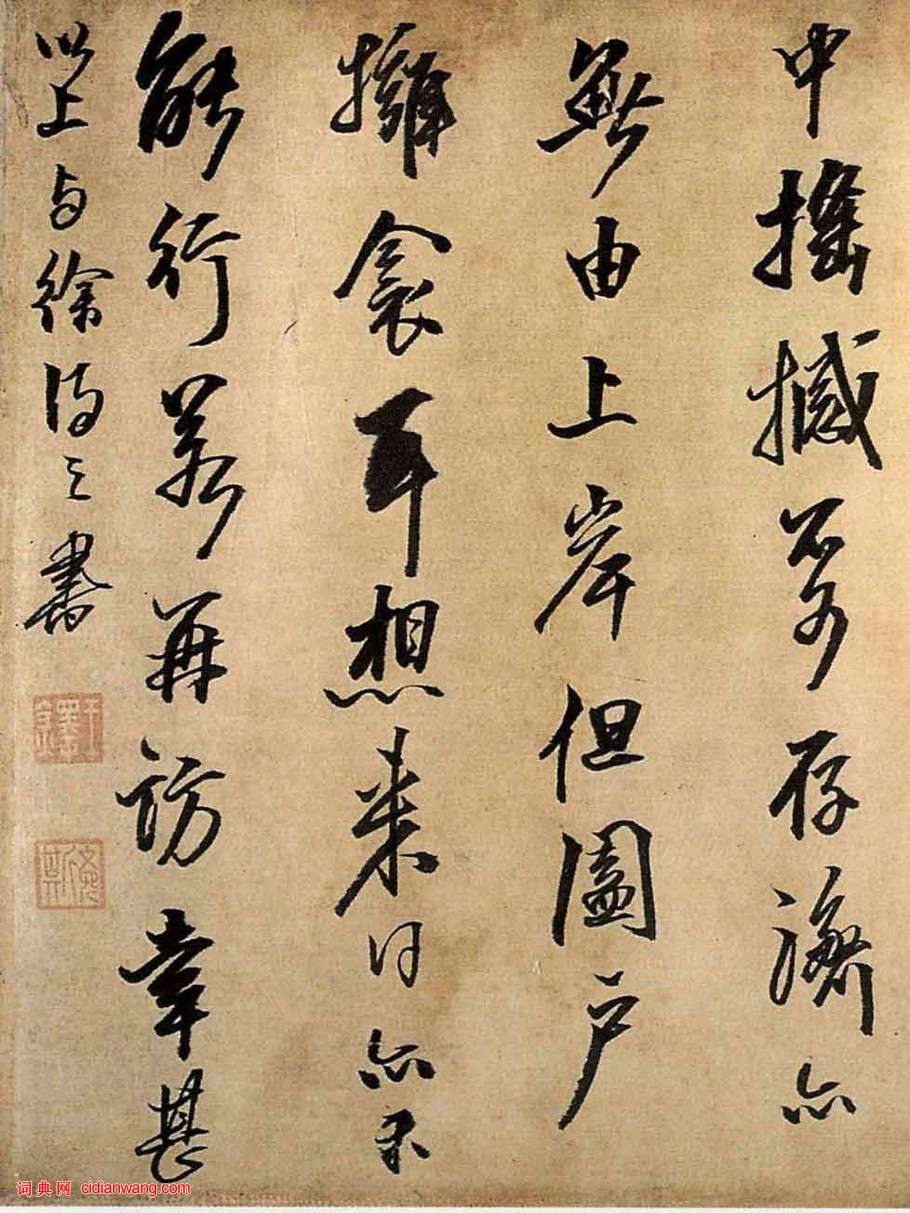 中摇撼不可存济亦
无由上岸但阖户
拥衾耳想来日亦未
能行若再访幸甚
以上与徐得之书
王铎
词典网 cidianwang.com